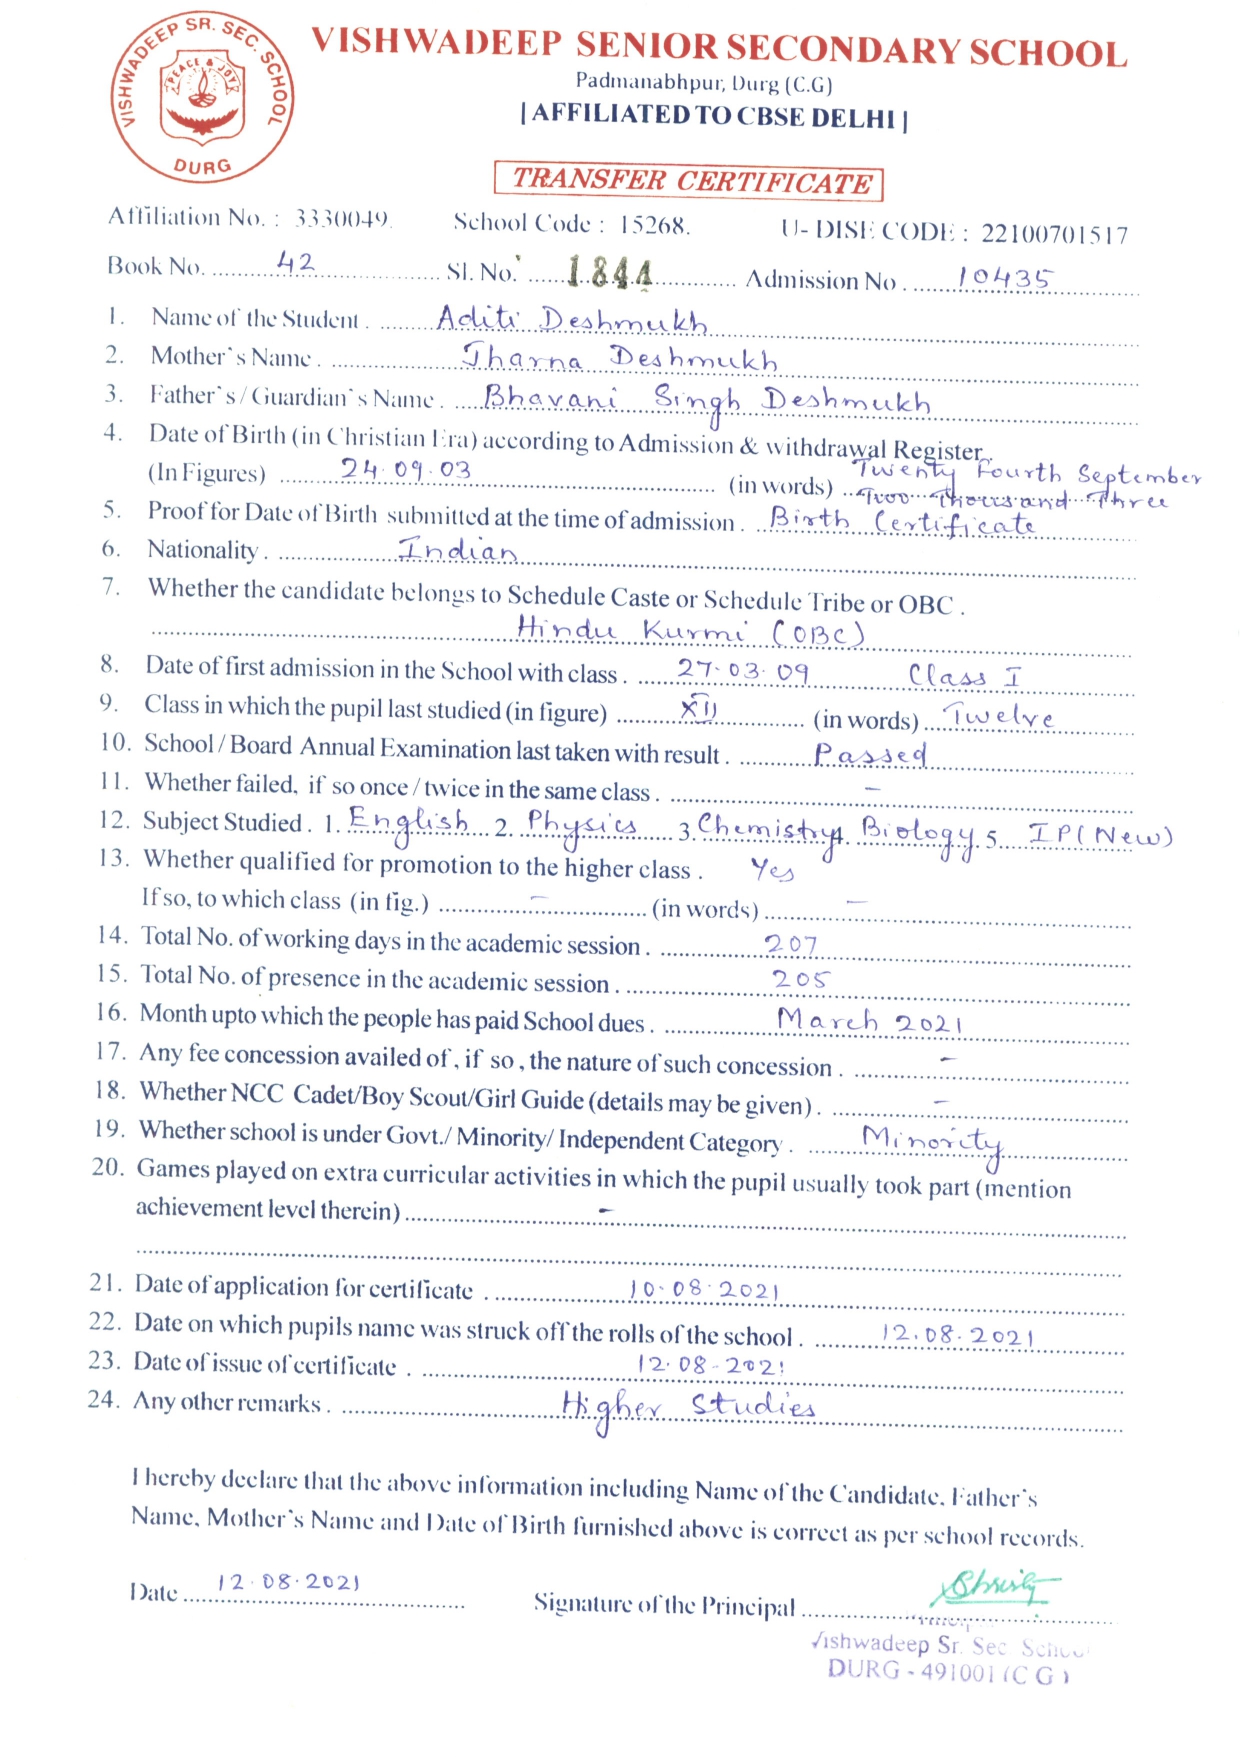 VISHWADEEP SR. SEC. SCHOOL
PEACE & JOY
DURG
VISHWADEEP SENIOR SECONDARY SCHOOL
Padmanabhpur, Durg (C.G)
| AFFILIATED TO CBSE DELHI |
TRANSFER CERTIFICATE
Affiliation No. : 3330049. School Code : 15268. U- DISE CODE : 22100701517
Book No. 42 Sl. No. 1844 Admission No . 10435
1. Name of the Student . Aditi Deshmukh
2. Mother's Name . Jharna Deshmukh
3. Father's / Guardian's Name . Bhavani Singh Deshmukh
4. Date of Birth (in Christian Era) according to Admission & withdrawal Register.
(In Figures) 24.09.03 (in words) Twenty Fourth September
Two Thousand Three
5. Proof for Date of Birth submitted at the time of admission . Birth Certificate
6. Nationality . Indian
7. Whether the candidate belongs to Schedule Caste or Schedule Tribe or OBC .
Hindu Kurmi (OBC)
8. Date of first admission in the School with class . 27.03.09 Class I
9. Class in which the pupil last studied (in figure) XII (in words) Twelve
10. School / Board Annual Examination last taken with result . Passed
11. Whether failed, if so once / twice in the same class . -
12. Subject Studied . 1. English 2. Physics 3. Chemistry 4. Biology 5. IP (New)
13. Whether qualified for promotion to the higher class . Yes
If so, to which class (in fig.) - (in words) -
14. Total No. of working days in the academic session . 207
15. Total No. of presence in the academic session . 205
16. Month upto which the people has paid School dues . March 2021
17. Any fee concession availed of , if so , the nature of such concession . -
18. Whether NCC Cadet/Boy Scout/Girl Guide (details may be given) . -
19. Whether school is under Govt./ Minority/ Independent Category . Minority
20. Games played on extra curricular activities in which the pupil usually took part (mention
achievement level therein) -
21. Date of application for certificate . 10.08.2021
22. Date on which pupils name was struck off the rolls of the school . 12.08.2021
23. Date of issue of certificate . 12.08-2021
24. Any other remarks . Higher Studies
I hereby declare that the above information including Name of the Candidate, Father's
Name, Mother's Name and Date of Birth furnished above is correct as per school records.
Date 12.08.2021 Signature of the Principal
Vishwadeep Sr. Sec. School
DURG - 491001 (C G )